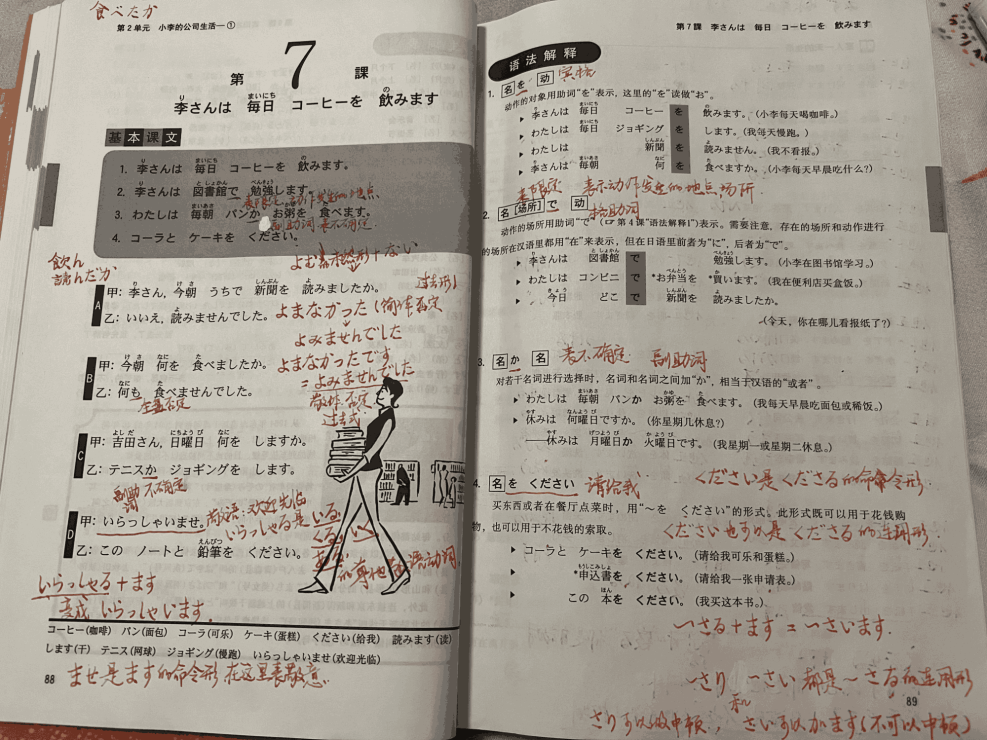 食べたか
第2単元 小李的公司生活—①
第 7 課
李さんは 毎日 コーヒーを 飲みます
基本课文
1. 李さんは 毎日 コーヒーを 飲みます。
2. 李さんは 図書館で 勉強します。
3. わたしは 毎朝 パンか お粥を 食べます。
副助词 表不确定
4. コーラと ケーキを ください。
飲ん
読んだか
A
甲: 李さん, 今朝 うちで 新聞を 読みましたか。
乙: いいえ, 読みませんでした。
よまなかった (简体否定
過去形)
よみませんでした
よまなかったです
= よみませんでした
敬体否定
过去式
B
甲: 今朝 何を 食べましたか。
乙: 何も 食べませんでした。
全量否定
C
甲: 吉田さん, 日曜日 何を しますか。
乙: テニスか ジョギングを します。
副助词 不确定
D
甲: いらっしゃいませ。
敬语: 欢迎光临
いらっしゃる是 いる,
くる, いく
乙: この ノートと 鉛筆を ください。
いらっしゃる + ます
变成 いらっしゃいます.
コーヒー(咖啡) パン(面包) コーラ(可乐) ケーキ(蛋糕) ください(给我) 読みます(读)
します(干) テニス(网球) ジョギング(慢跑) いらっしゃいませ(欢迎光临)
88
ませ是ます的命令形 在这里表敬意
第7課 李さんは 毎日 コーヒーを 飲みます
语法解释
1. 名を 動 宾格
动作的对象用助词"を"表示，这里的"を"读做"お"。
▶ 李さんは 毎日 コーヒー を 飲みます。(小李每天喝咖啡。)
▶ わたしは 毎日 ジョギング を します。(我每天慢跑。)
▶ わたしは 新聞 を 読みません。(我不看报。)
▶ 李さんは 毎朝 何 を 食べますか。(小李每天早晨吃什么?)
表限定 表示动作发生的地点场所
2. 名[场所]で 動 格助词
动作的场所用助词"で"(☞第4课"语法解释1")表示。需要注意，存在的场所和动作进行
的场所在汉语里都用"在"来表示，但在日语里前者为"に"，后者为"で"。
▶ 李さんは 図書館 で 勉強します。(小李在图书馆学习。)
▶ わたしは コンビニ で *お弁当を *買います。(我在便利店买盒饭。)
▶ 今日 どこ で 新聞を 読みましたか。
(今天，你在哪儿看报纸了?)
3. 名か 名 表不确定 副助词
对若干名词进行选择时，名词和名词之间加"か"，相当于汉语的"或者"。
▶ わたしは 毎朝 パンか お粥を 食べます。(我每天早晨吃面包或稀饭。)
▶ 休みは 何曜日ですか。(你星期几休息?)
——休みは 月曜日か 火曜日です。(我星期一或星期二休息。)
4. 名を ください 请给我
ください是くださる的命令形.
买东西或者在餐厅点菜时，用"～を ください"的形式。此形式既可以用于花钱购
物，也可以用于不花钱的索取。
ください也可以是くださる的连用形.
▶ コーラと ケーキを ください。(请给我可乐和蛋糕。)
▶ *申込書を ください。(请给我一张申请表。)
▶ この 本を ください。(我买这本书。)
～さる+ます = ～さいます.
～さり 和 ～さい 都是～さる的连用形
89
さり可以做中顿, さい可以加ます(不可以中顿)